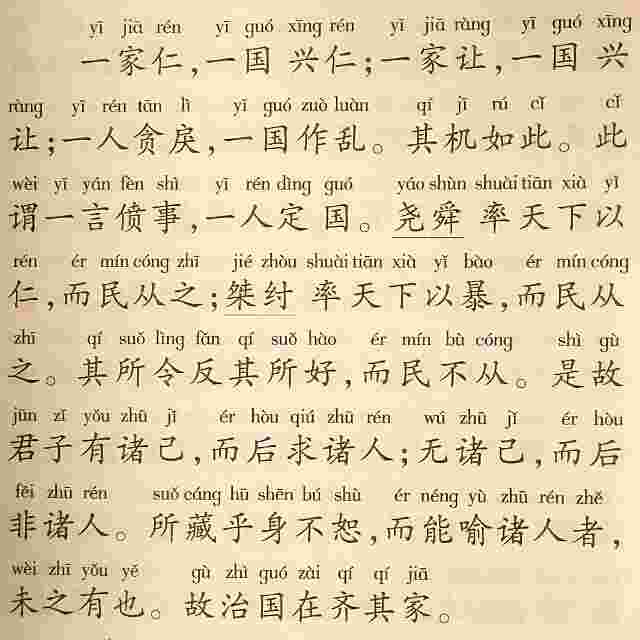 yī jiā rén yī guó xīng rén yī jiā ràng yī guó xīng
一家仁,一国兴仁;一家让,一国兴
ràng yī rén tān lì yī guó zuò luàn qí jī rú cǐ cǐ
让;一人贪戾,一国作乱。其机如此。此
wèi yī yán fèn shì yī rén dìng guó yáo shùn shuài tiān xià yǐ
谓一言偾事,一人定国。尧舜率天下以
rén ér mín cóng zhī jié zhòu shuài tiān xià yǐ bào ér mín cóng
仁,而民从之;桀纣率天下以暴,而民从
zhī qí suǒ lìng fǎn qí suǒ hào ér mín bù cóng shì gù
之。其所令反其所好,而民不从。是故
jūn zǐ yǒu zhū jǐ ér hòu qiú zhū rén wú zhū jǐ ér hòu
君子有诸己,而后求诸人;无诸己,而后
fēi zhū rén suǒ cáng hū shēn bú shù ér néng yù zhū rén zhě
非诸人。所藏乎身不恕,而能喻诸人者,
wèi zhī yǒu yě gù zhì guó zài qí qí jiā
未之有也。故治国在齐其家。